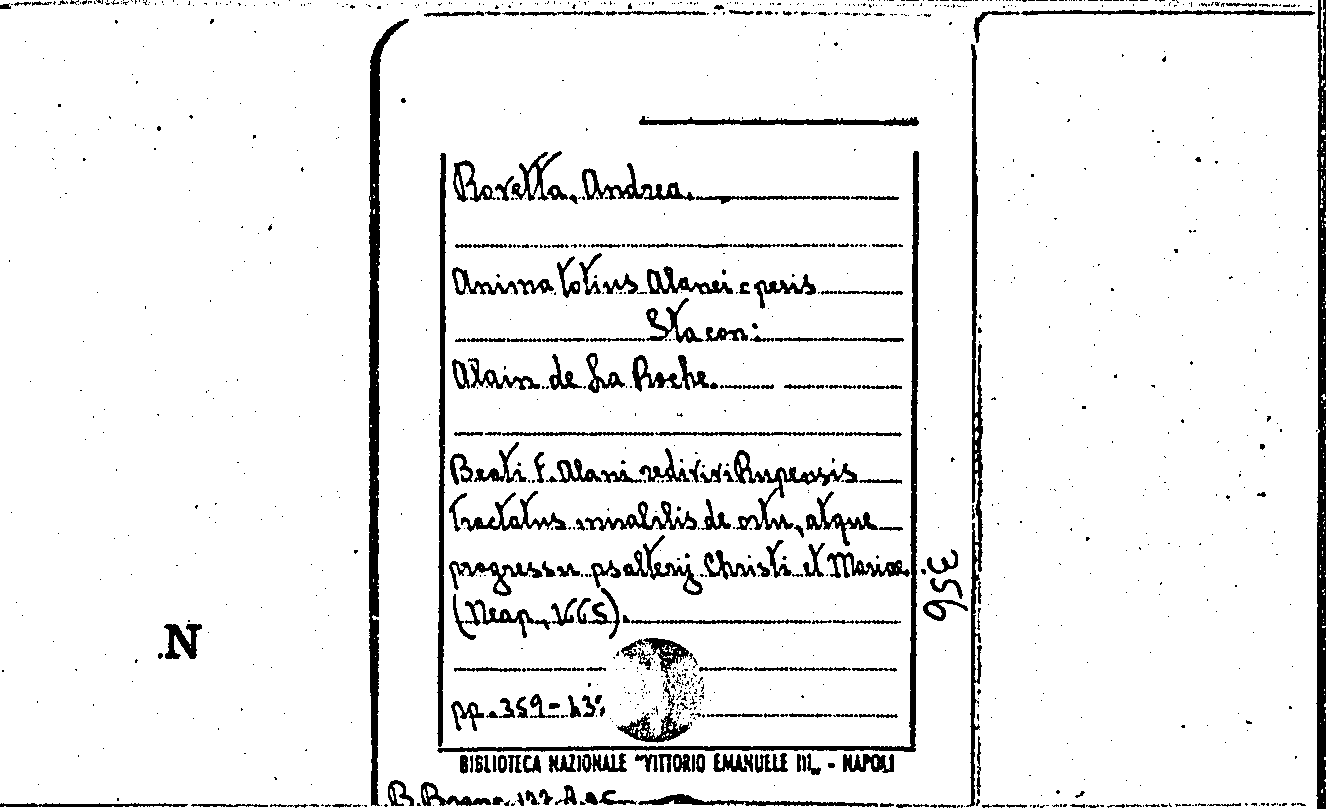 Rovetta, Andrea.
Anima totius Alanei operis
Sta con:
Alain de La Roche.
Beati F. Alani redivivi Rupensis
tractatus mirabilis de ortu, atque
progressu psalterij Christi et Mariae.
(Neap., 1665).
356
N
pp. 359-43
BIBLIOTECA NAZIONALE "VITTORIO EMANUELE III„ - NAPOLI
B. Branc.